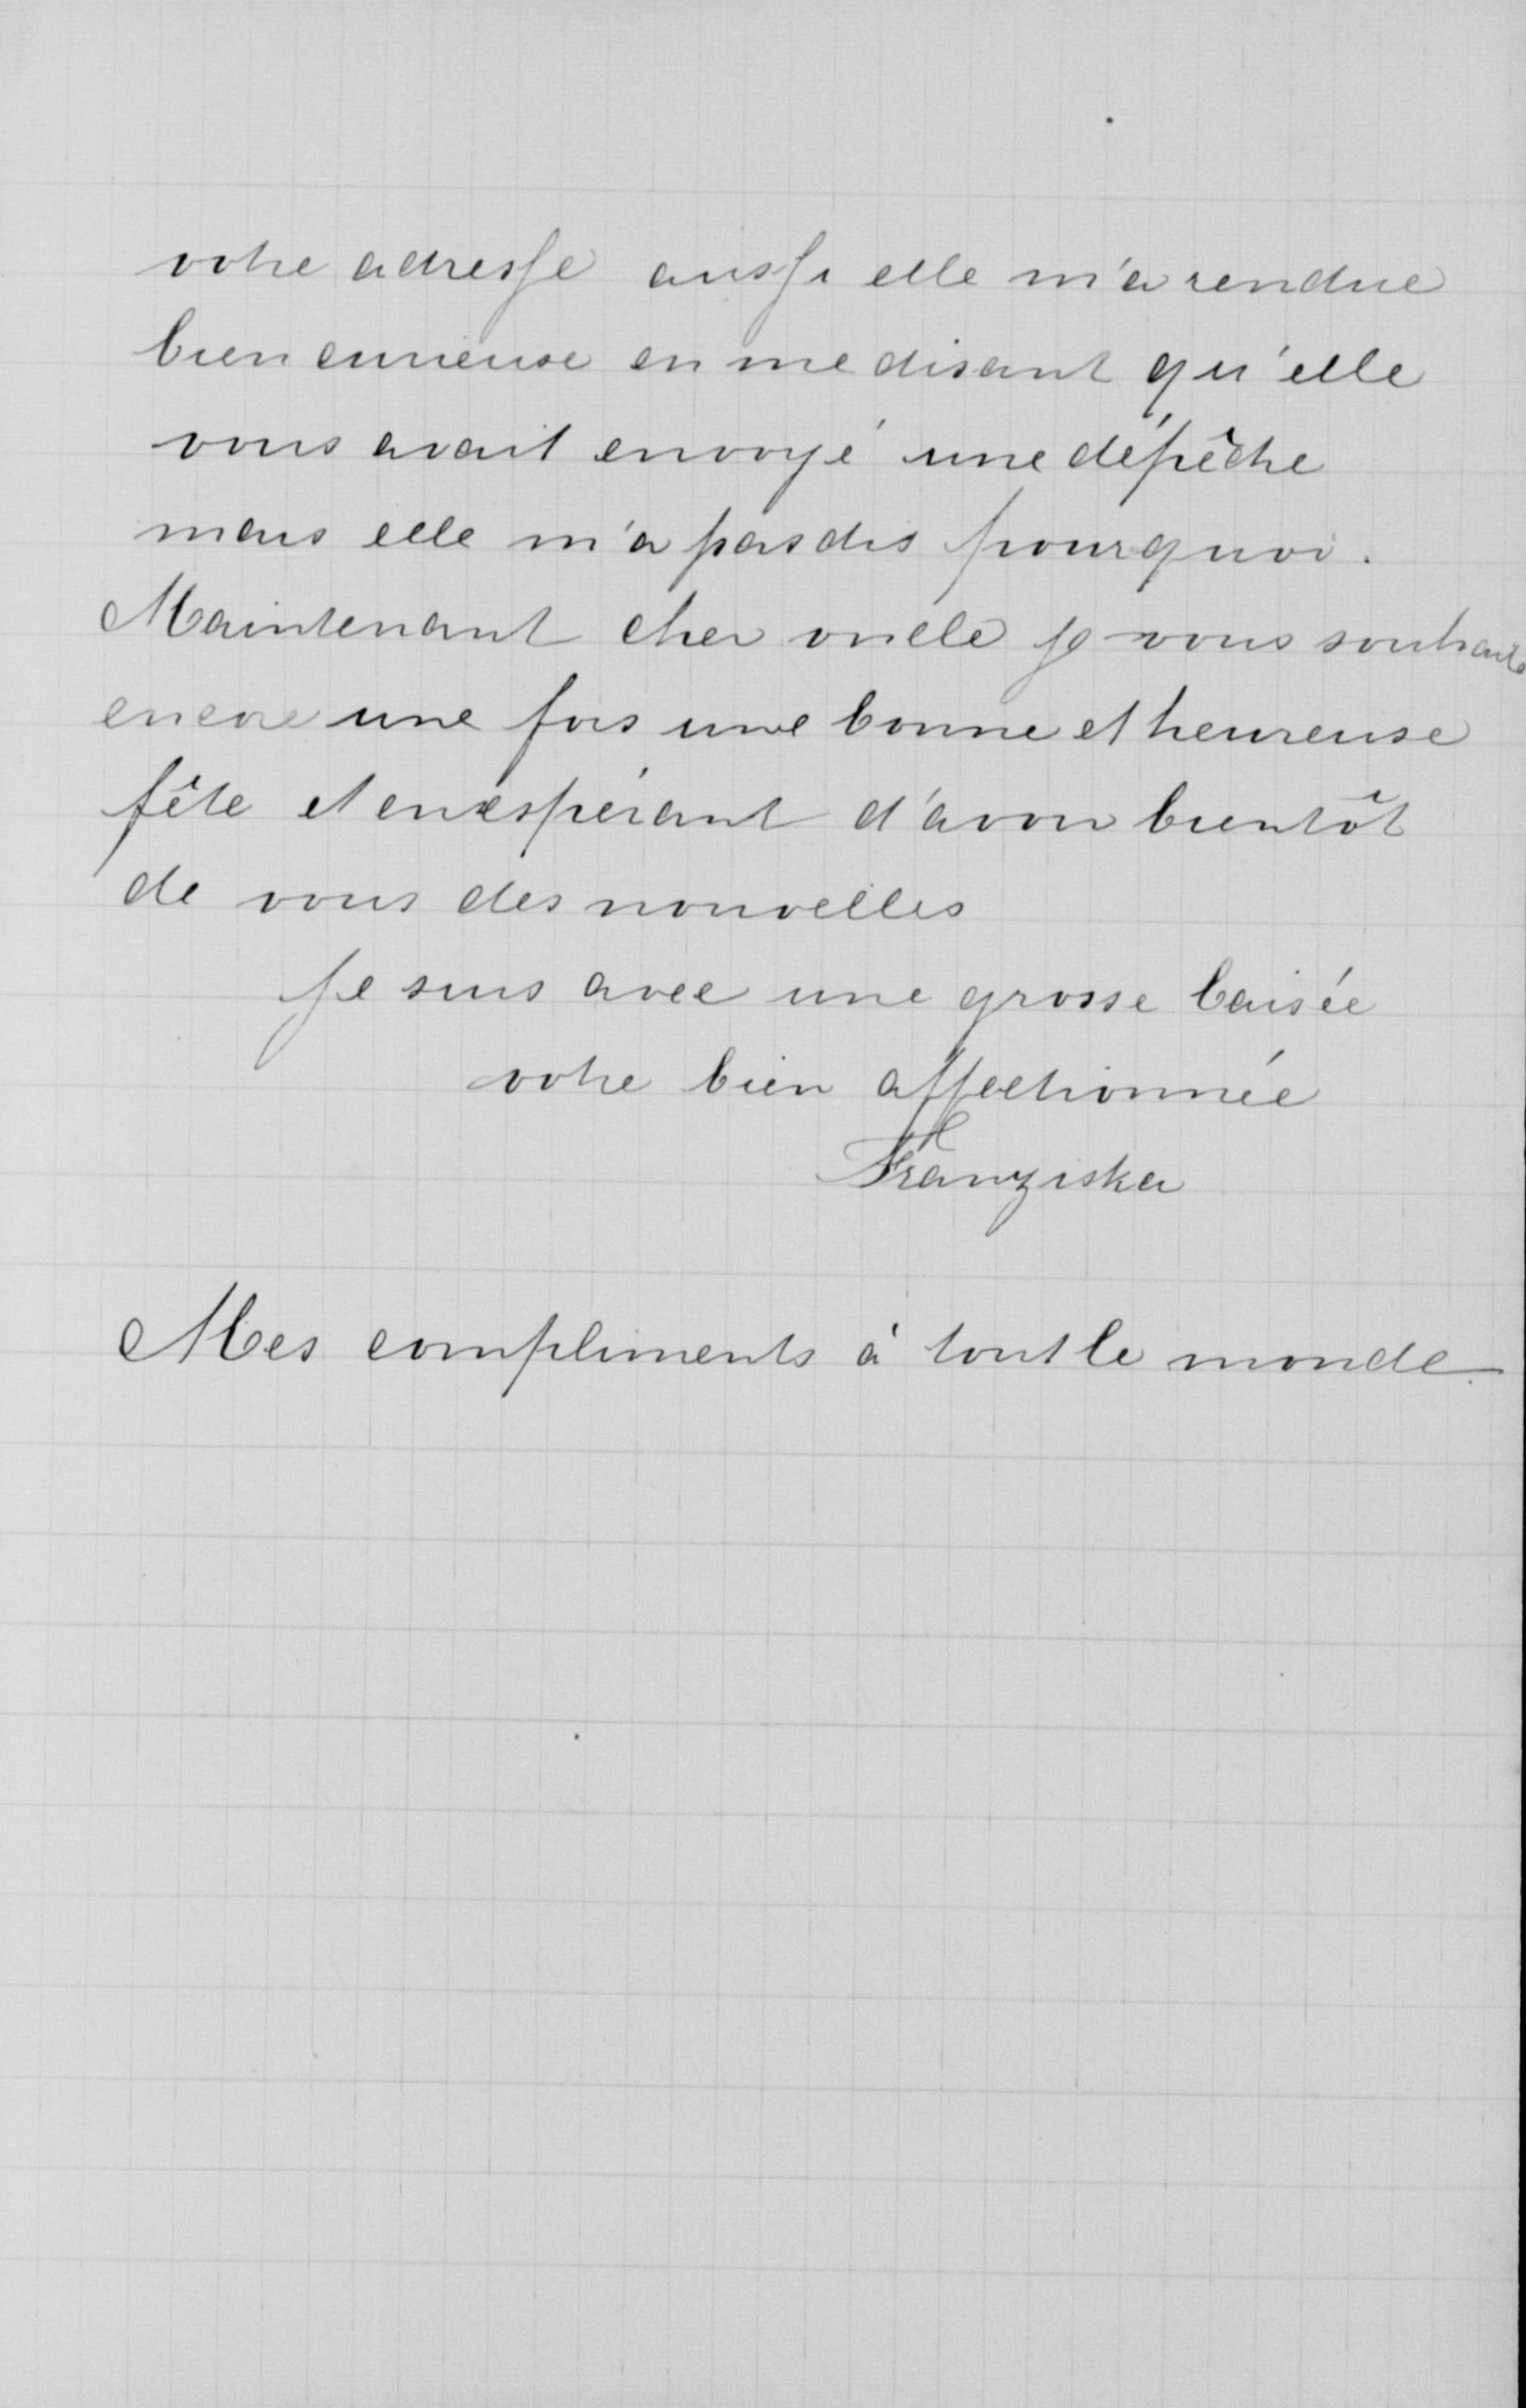 votre adresse aussi elle m'a rendue
bien curieuse en me disant qu'elle
vous avait envoyé une dépêche
mais elle m'a pas dis pourquoi.
Maintenant cher oncle je vous souhaite
encore une fois une bonne et heureuse
fête et en espérant d'avoir bientôt
de vous des nouvelles
je suis avec une grosse baisée
votre bien affectionnée
Franziska
Mes compliments à tout le monde.